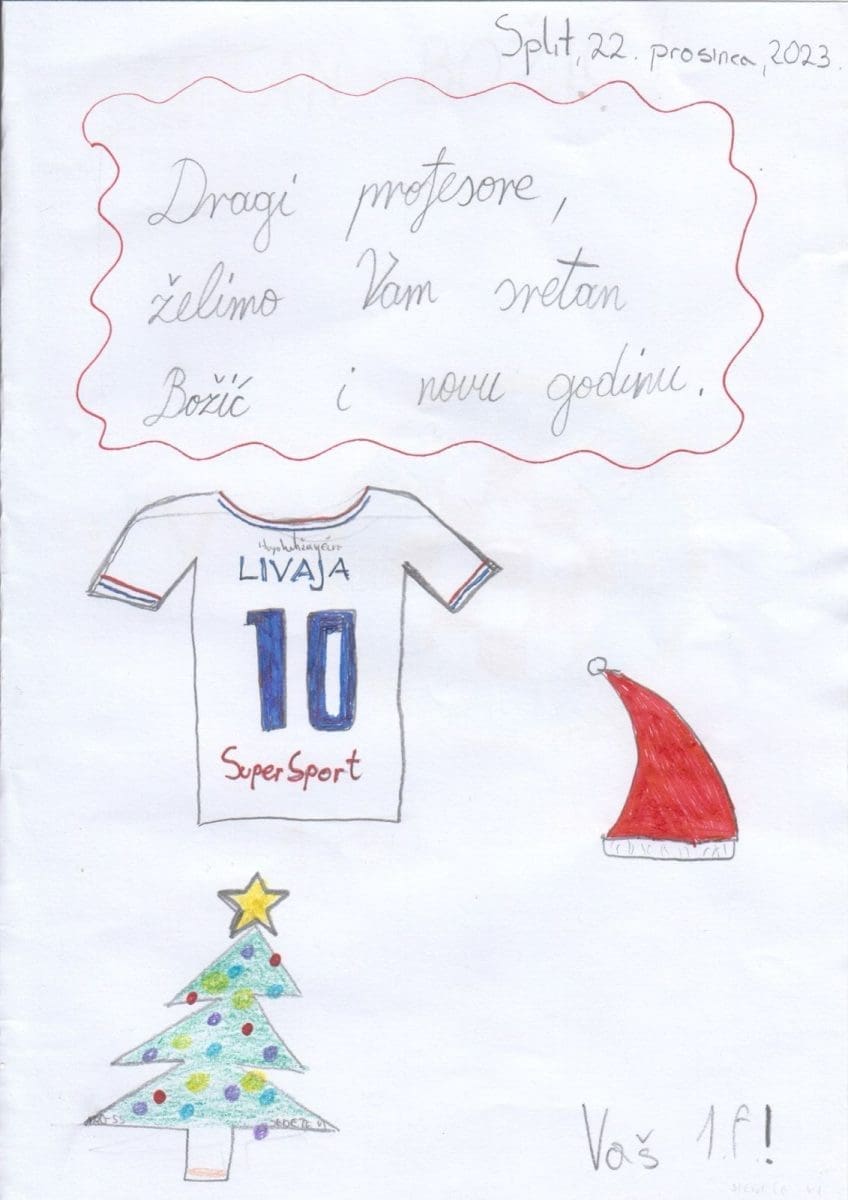 Split, 22. prosinca, 2023.
Dragi profesore,
želimo Vam sretan
Božić i novu godinu.
LIVAJA
10
SuperSport
Vaš 1.f!